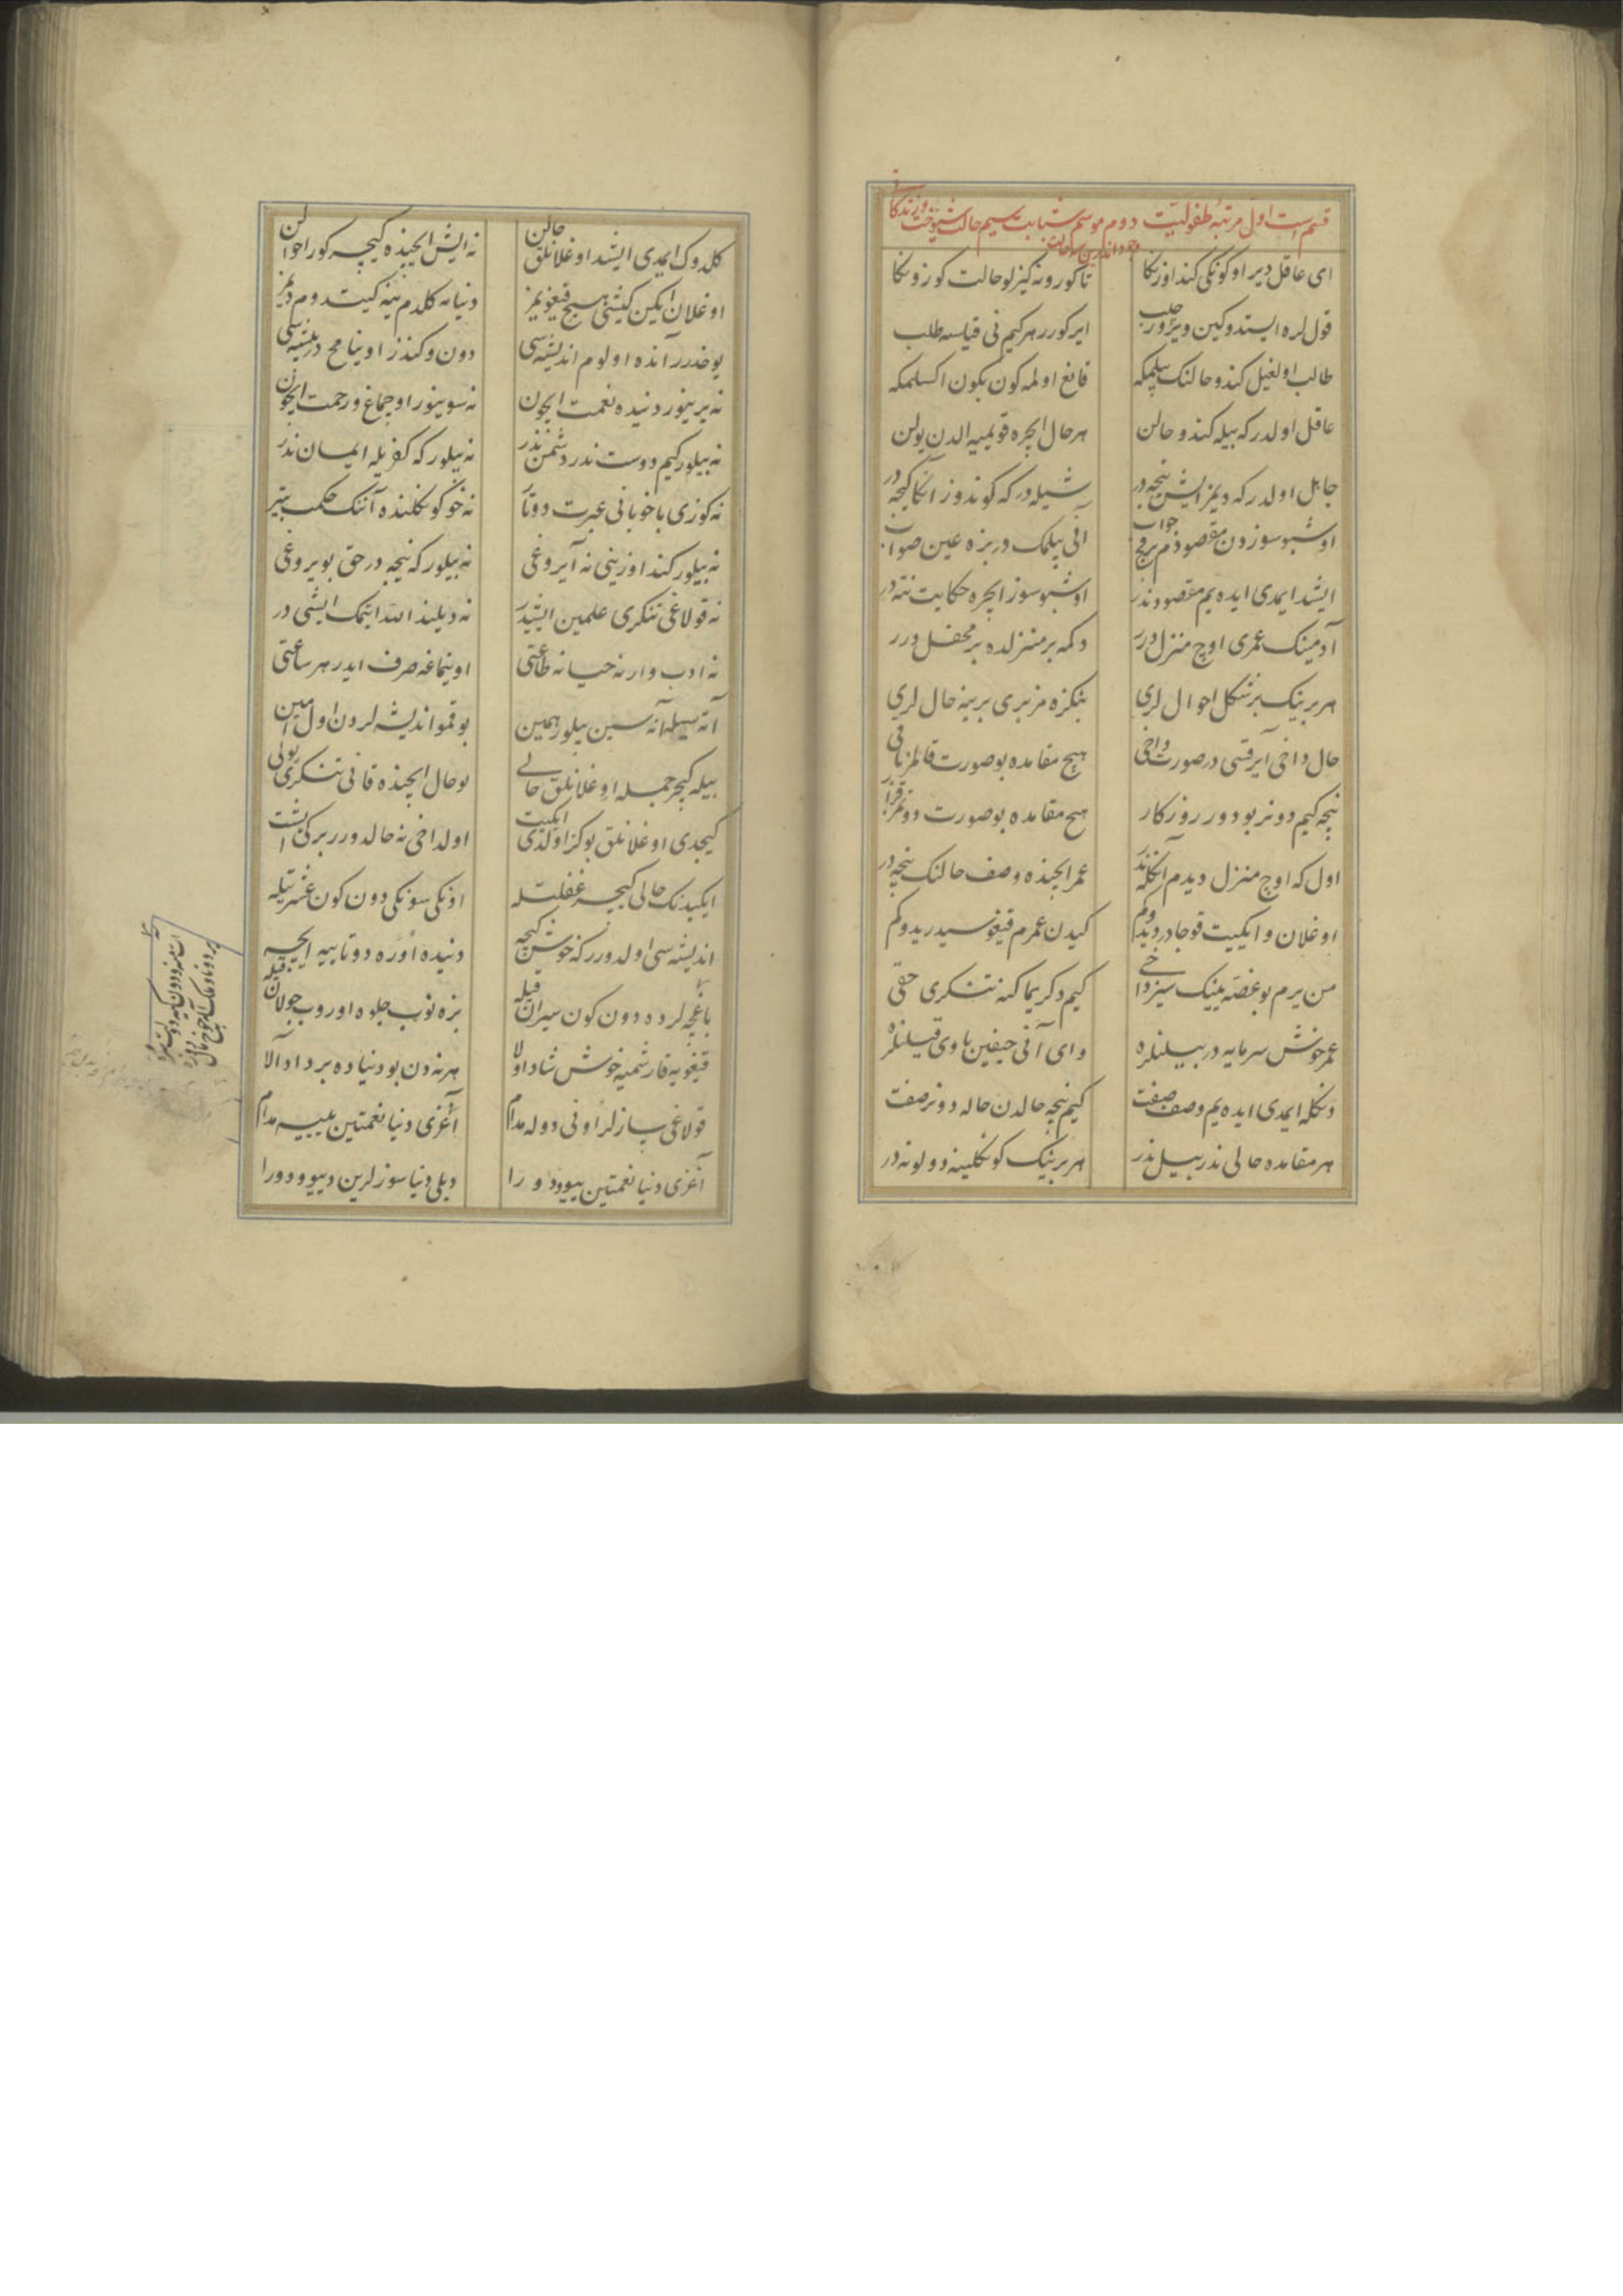 قسم است اول مرتبه طفولیت دوم موسم شبابت سیم حالت شیخوخت و زندگانی
اى عاقل دیر اوکونکى کند اوزنکا تا کورونه کیزلو حالت کوزونکا
قول لره ایستدوکین ویرر چلب ایرکورر هر کیم نى قیلسه طلب
طالب اولغیل کندو حالنک بیلمکه قانع اولمه کون بکون اکسلمکه
عاقل اولدر که بیله کندو حالن هر حال ایچره قویمیه الدن یولن
جاهل اولدر که دیمز ایشن نیجه در شیله در که کوندوز آنکا کیجه در
اوشبو سوزدن مقصودم بر قچ جواب آنى بیلمک در بزه عین صواب
ایشد ایمدى ایده یم مقصود ندر اوشبو سوز ایچره حکایت نته در
آدمینک عمرى اوچ منزل درر دکمه بر منزلده بر محفل درر
هر برینک بر شکل احوال لرى بنکزه مز برى برینه حال لرى
حال داخى آیرقسى در صورت داخى هیچ مقامده بو صورت قالمز باقى
نیجه کیم دونر بو دور روزکار هیچ مقامده بو صورت دوتمز قرار
اول که اوچ منزل دیدم آنکله ندر عمر ایچنده وصف حالنک نیجه در
اوغلان و ایکیت قوجا در دیدوکم کیدن عمرم قیغوسیدر یدوکم
من یرم بو غصه یینک سیز داخى کیم دکریما کنه تنکرى حقى
عمر خوش سرمایه در بیلنلره واى آنى حیفین یاوى قیلنلره
دنکله ایمدى ایده یم وصف صفت کیم نیجه حالدن حاله دونر صفت
هر مقامده حالى ندر بیل ندر هر برینک کونکلینه دولو نه در
کلدوک ایمدى ایشد اوغلانلق حالن نه ایش ایچنده کیچه کور احوالن
اوغلان ایکن کیشى هیچ قیغو یمز دنیایه کلدم ینه کیتدوم دیمز
یوخدرر آنده اولوم اندیشه سى دون و کندز اوینامخ در پیشه سى
نه یرینور دنیده نعمت ایچون نه سوینور اوچماغ و رحمت ایچون
نه بیلور کیم دوست ندر دشمن ندر نه بیلور که کفریله ایمان ندر
نه کوزى باخوبانى عبرت دوتار نه خو کونکلنده آننک حکمت بیتر
نه بیلور کند اوزینى نه آیروغى نه بیلور که نیجه در حق بویروغى
نه قولاغى تنکرى علمین ایشیدر نه دیلینده الله ایتمک ایشى در
نه ادب وار نه حیا نه طاعتى اوینماغه صرف ایدر هر ساعتى
آته سیله آنه سین بیلور همین بو قمو اندیشه لردن اول امین
بیله کیچر جمله اوغلانلق حالى بو حال ایچنده قانى تنکرى یولى
کیجدى اوغلانلق بو کز اولدى ایکیت اول داخى نه حالدورر برکى ایشت
ایکیدنک حالى کیچه غفلتیله اونکى سونکى دون کون عشرتیله
اندیشه سى اولدورر که خوش کیچه دنیده اوره دوتا ییه ایچه
باغچه لرده دون کون سیران قیله بزه نوب جلوه اوروب جولان قیله
قیغویه قارشمیه خوش شاد اولا هر نه دن بو دنیاده بر داد آلا
قولاغى سازلر اونى دوله مدام آغزى دنیا نعمتین ییه مدام
آغزى دنیا نعمتین ییوودورا دیلى دنیا سوزلرین دییوودورا